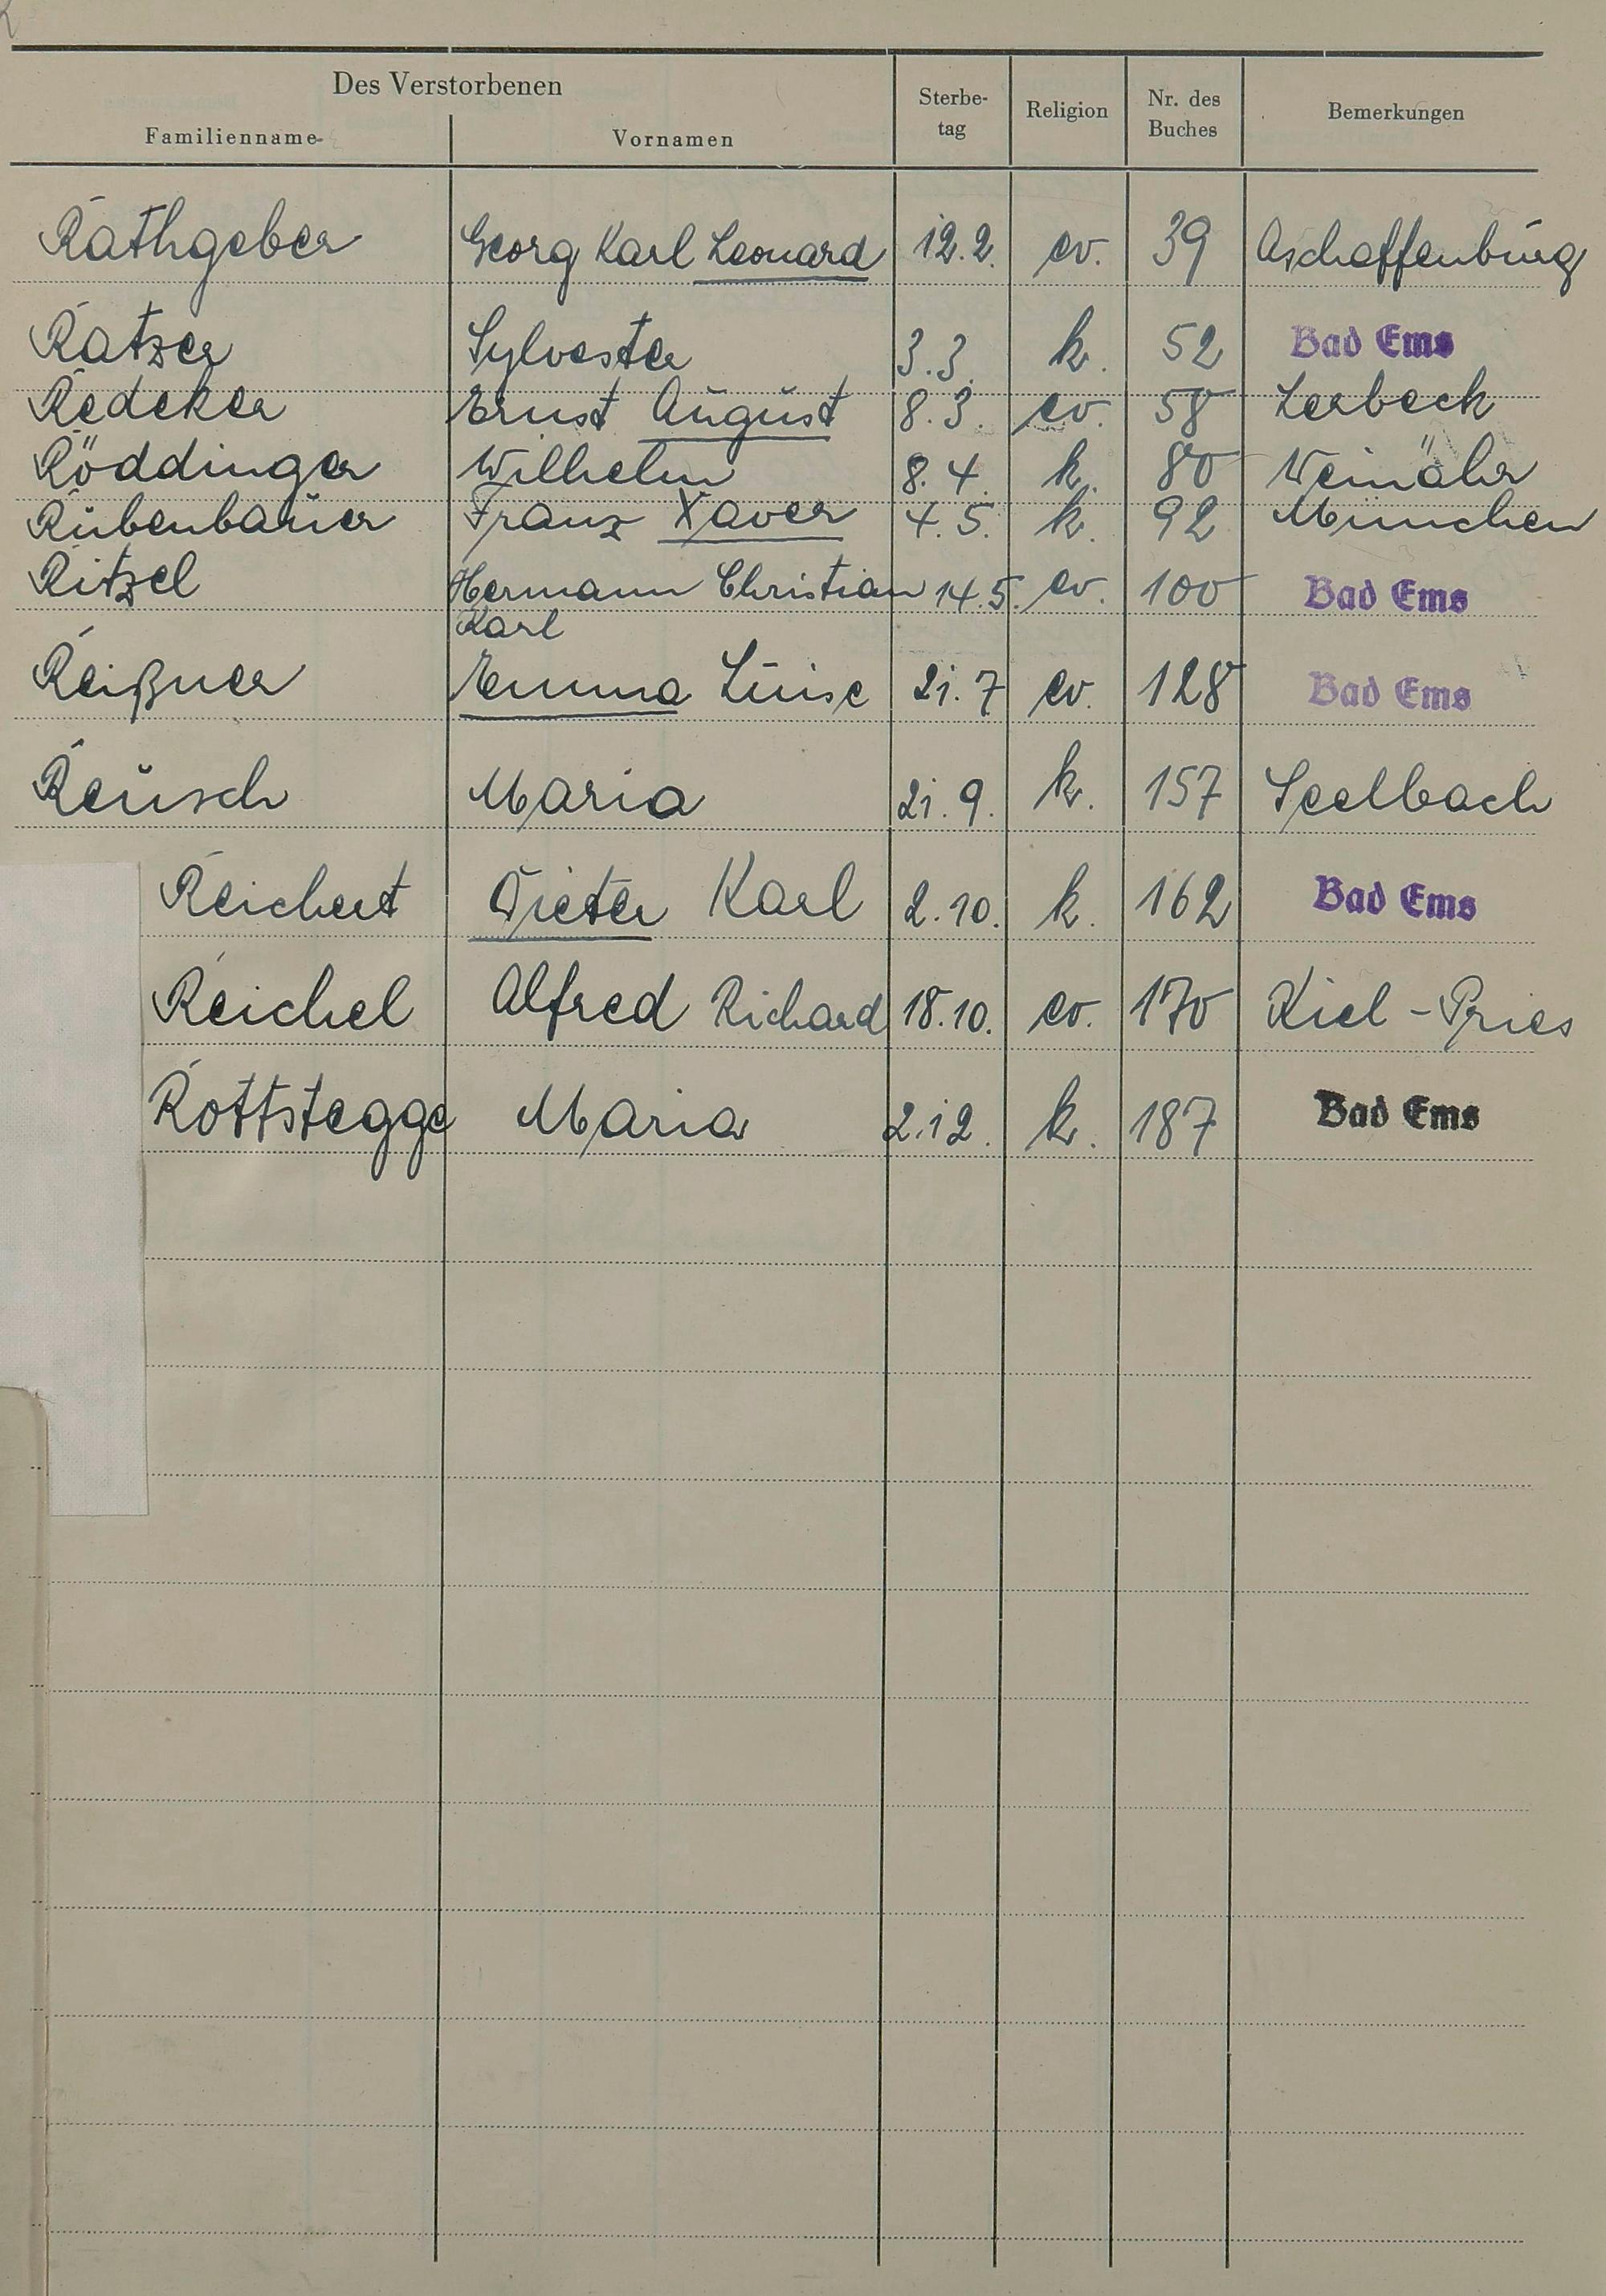 Des Verstorbenen
Familienname Vornamen Sterbe- tag Religion Nr. des Buches Bemerkungen
Rathgeber Georg Karl Leonard 12.2. ev. 39 Aschaffenburg
Ratzer Sylvester 3.3. k. 52 Bad Ems
Redeker Ernst August 8.3. ev. 58 Lerbeck
Röddinger Wilhelm 8.4. k. 80 Weinähr
Rübenbauer Franz Xaver 4.5. k. 92 München
Ritzel Hermann Christian 14.5. ev. 100 Bad Ems
Karl
Reißner Emma Luise 21.7 ev. 128 Bad Ems
Reusch Maria 21.9. k. 157 Seelbach
Reichert Dieter Karl 2.10. k. 162 Bad Ems
Reichel Alfred Richard 18.10. ev. 170 Kiel - Pries
Rottstegge Maria 2.12. k. 187 Bad Ems